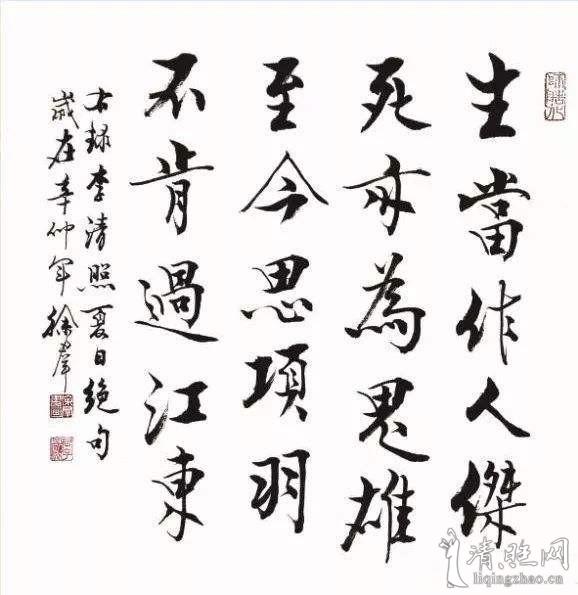 生當作人傑
死亦為鬼雄
至今思項羽
不肯過江東
右録李清照夏日絶句
歲在辛卯年徐
liqingzhao.cn